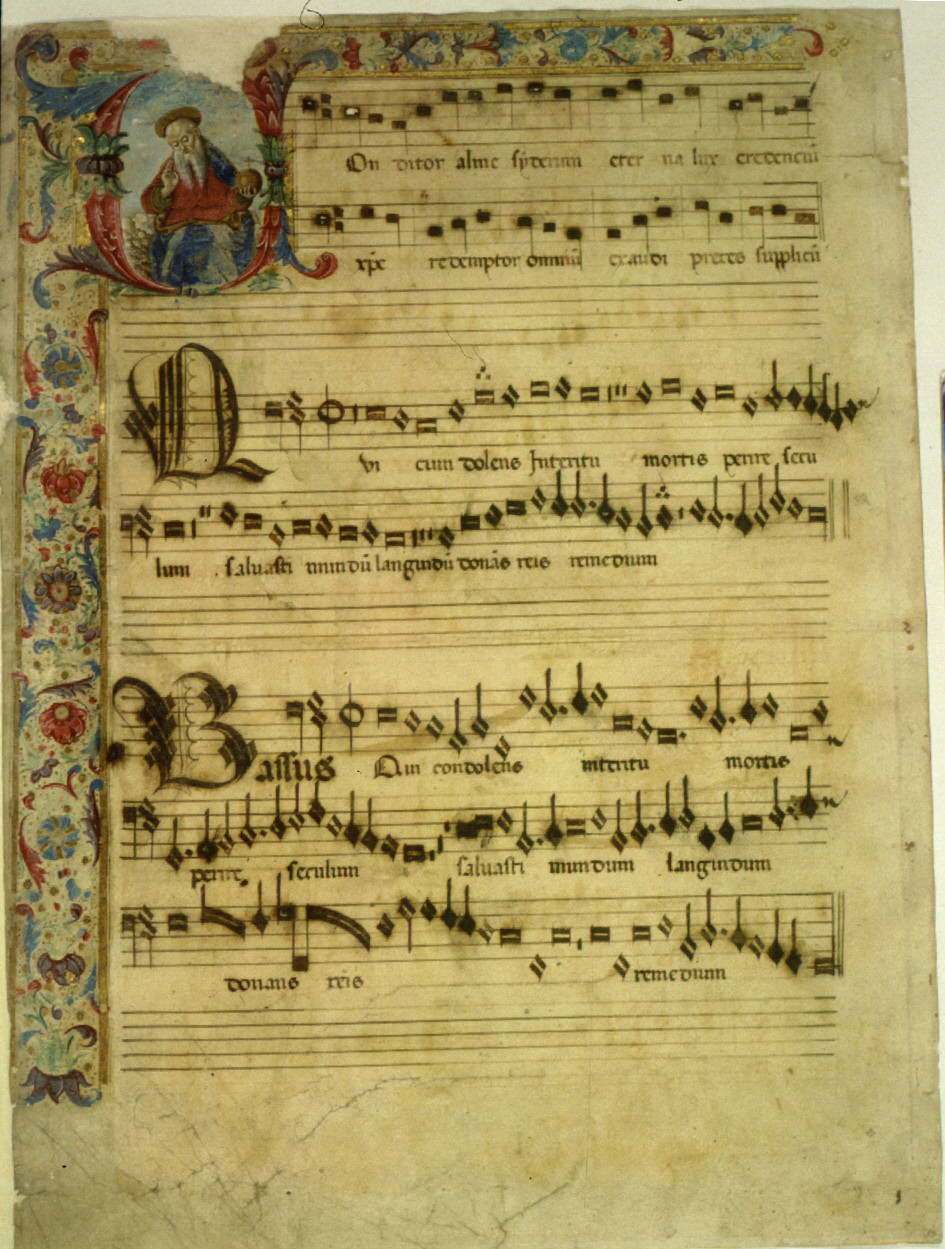 On ditor alme syderum eter na lux credenciū
xp̄e redemptor omniū exaudi preces supplicū
Qvi cum dolens Interitu mortis perire secu
lum saluasti mundū languidū donās reis remedium
Bassus Qui condolens interitu mortis
perire seculum saluasti mundum languidum
donans reis remedium